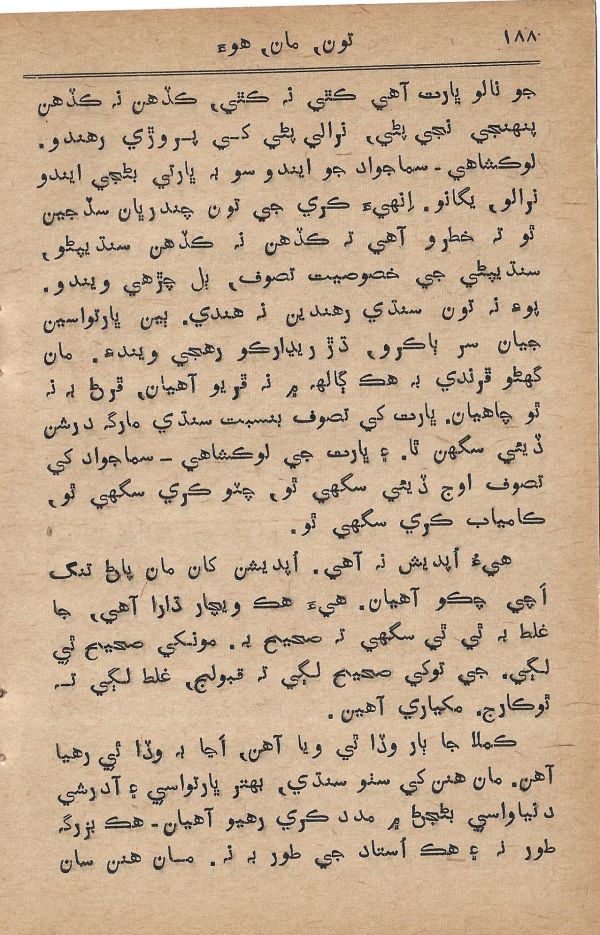 ١٨٨
تون، مان، هوءَ
جو نالو ڀارت آهي ڪٿي نہ ڪٿي، ڪڏهن نہ ڪڏهن
پنهنجي نجي پڻي، نرالي پڻي کي پروڙي رهندو.
لوڪشاهي - سماجواد جو ايندو سو بہ ڀارتي بڻجي ايندو
نرالو، يگانو. اِنهيءَ ڪري جي تون چندريان سڏجين
ٿو تہ خطرو آهي تہ ڪڏهن نہ ڪڏهن سنڌيپڻو،
سنڌيپڻي جي خصوصيت تصوف، ٻل چڙهي ويندو.
پوءِ نہ تون سنڌي رهندين نہ هندي. ٻين ڀارتواسين
جيان سر ٻاڪرو، ڌڙ ريڍارڪو رهجي ويندءِ. مان
گهڻو ڦرندي بہ هڪ ڳالهہ ۾ نہ ڦريو آهيان، ڦرڻ بہ نہ
ٿو چاهيان. ڀارت کي تصوف بنسبت سنڌي مارگہ درشن
ڏيئي سگهن ٿا. ۽ ڀارت جي لوڪشاهي - سماجواد کي
تصوف اوج ڏيئي سگهي ٿو، چٽو ڪري سگهي ٿو،
ڪامياب ڪري سگهي ٿو.
هيءُ اُپديش نہ آهي. اُپديشن کان مان پاڻ تنگ
اَچي چڪو آهيان. هيءَ هڪ ويچار ڌارا آهي، جا
غلط بہ ٿي ٿي سگهي تہ صحيح بہ. مونکي صحيح ٿي
لڳي. جي توکي صحيح لڳي تہ قبولج، غلط لڳي تہ
ٿوڪارج. مڪياري آهين.
ڪملا جا ٻار وڏا ٿي ويا آهن، اَڃا بہ وڏا ٿي رهيا
آهن. مان هنن کي سٺو سنڌي، بهتر ڀارتواسي ۽ آدرشي
دنياواسي بڻجڻ ۾ مدد ڪري رهيو آهيان - هڪ بزرگہ
طور نہ ۽ هڪ اُستاد جي طور بہ نہ. مان هنن سان